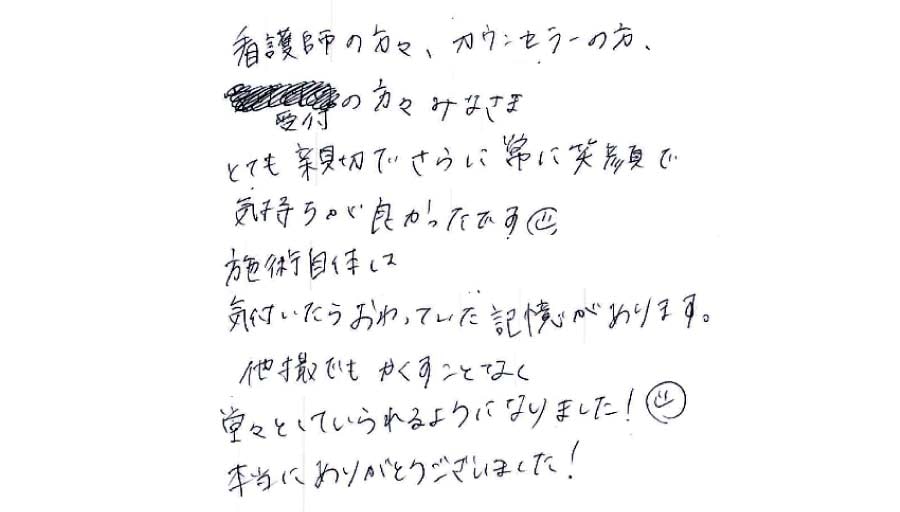 看護師の方々、カウンセラーの方、
受付の方々みなさま
とても親切でさらに常に笑顔で
気持ちが良かったです
施術自体は
気付いたらおわっていた記憶があります。
他撮でもかくすことなく
堂々としていられるようになりました!
本当にありがとうございました!